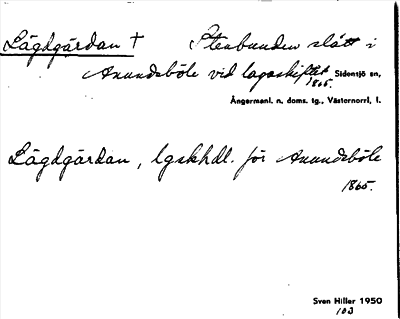 Lägdgårdan † Stenbunden slått i
Anundsböle vid lagaskiftet 1865. Sidensjö sn,
Ångermanl. n. doms. tg., Västernorrl. l.
Lägdgårdan, lgskhdl. för Anundsböle
1865.
Sven Hiller 1950
103